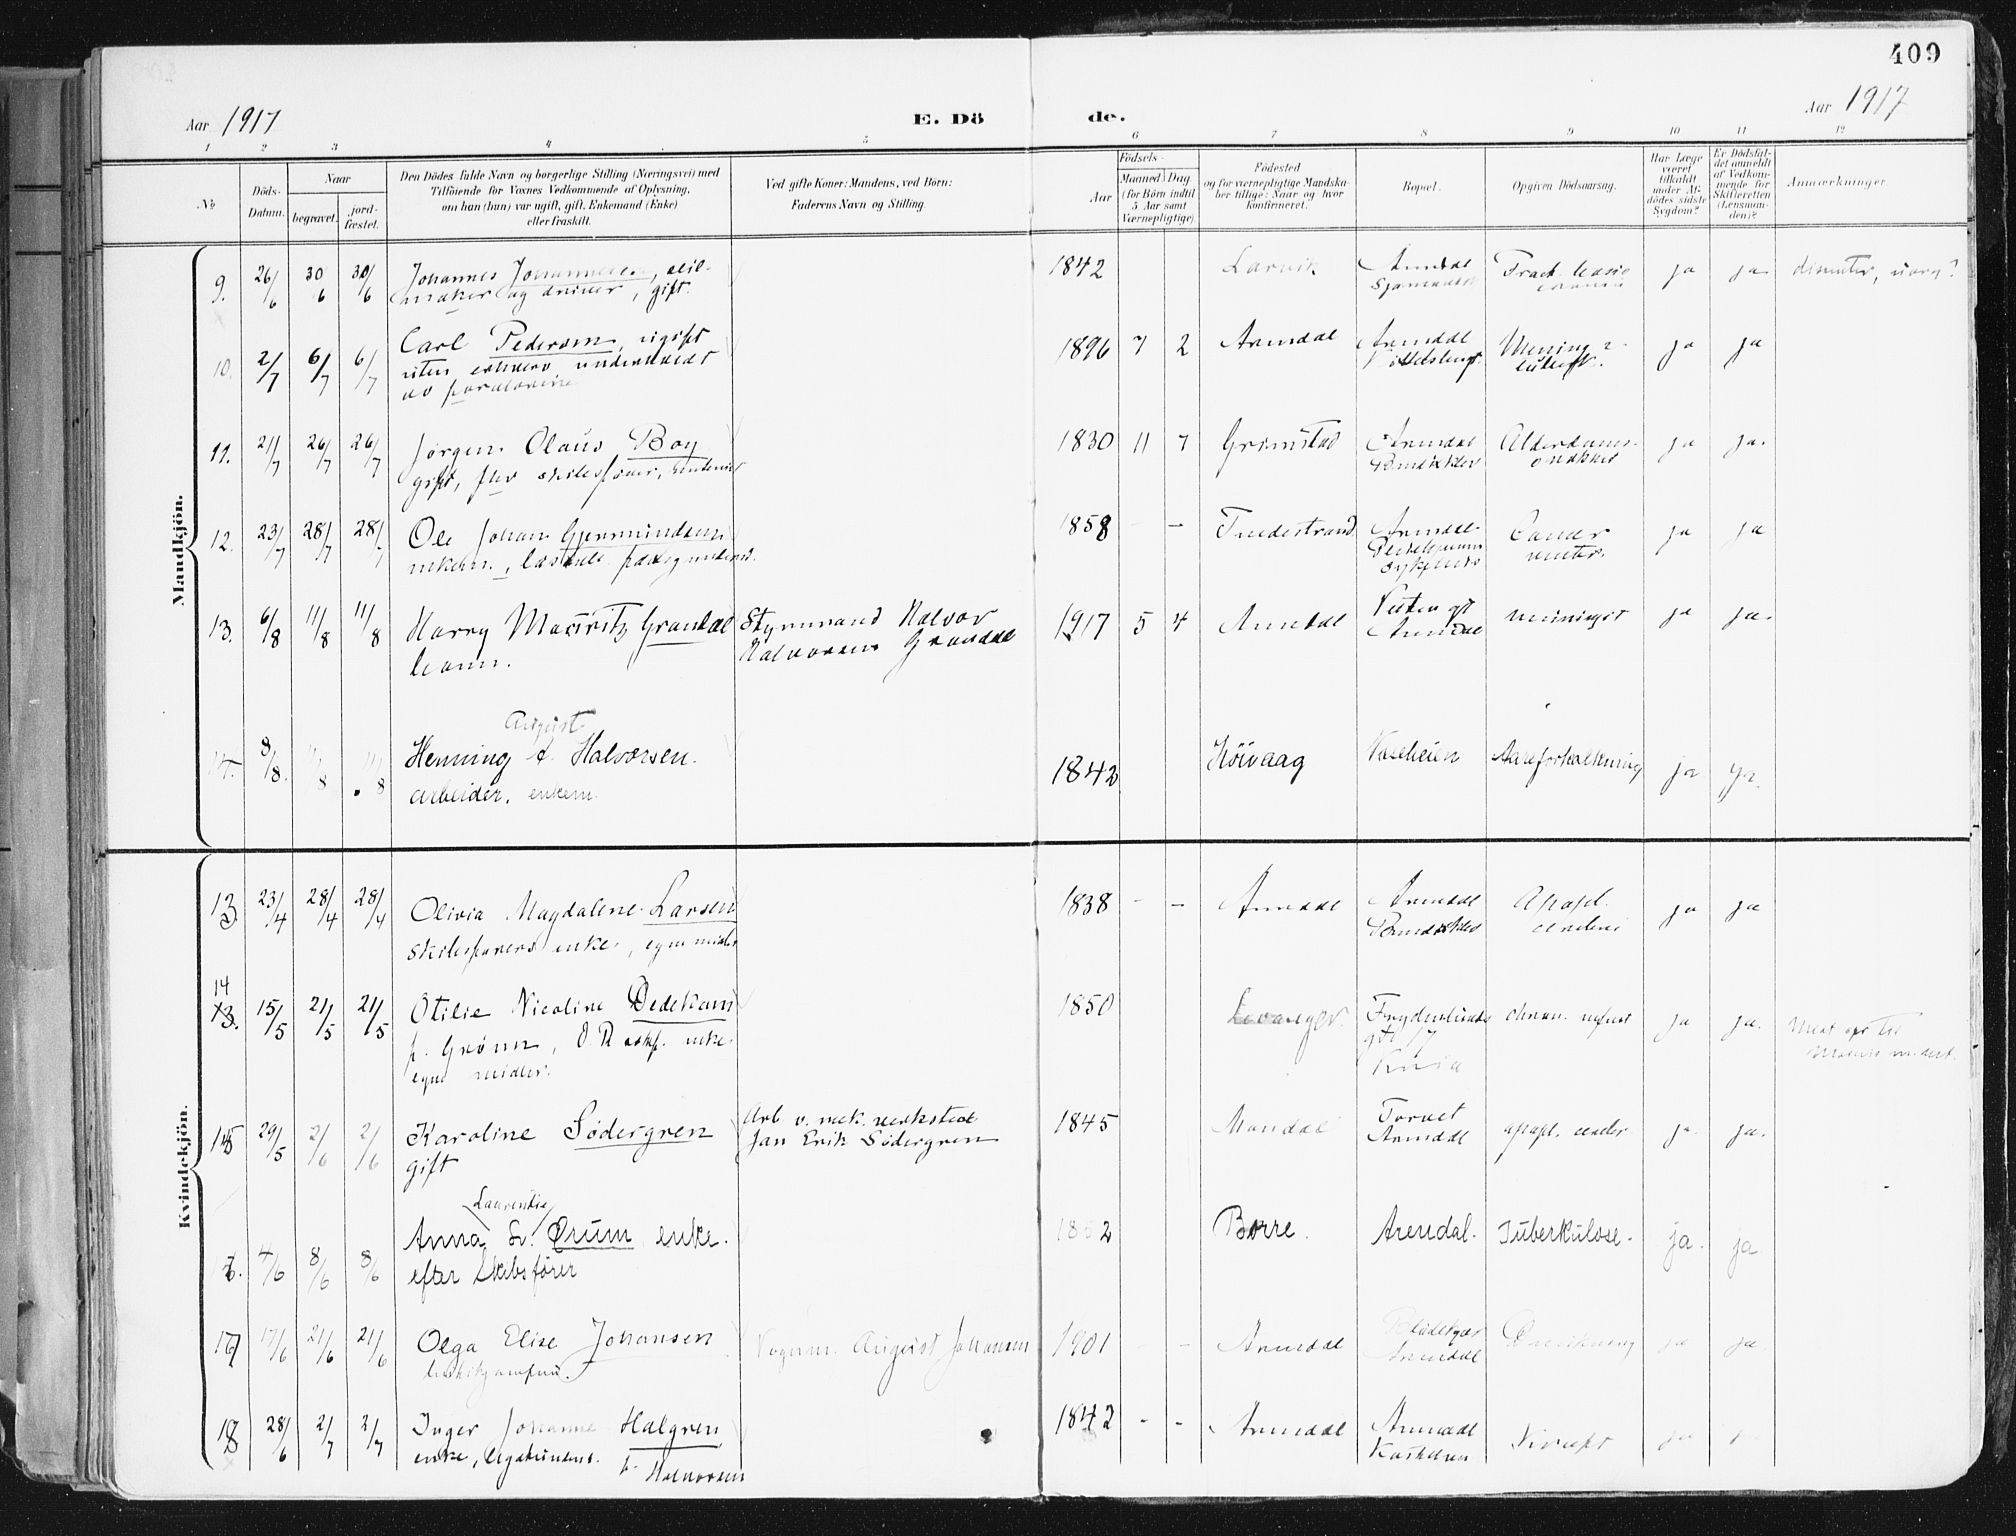 409
Aar 1917
E. Dö de.
Aar 1917
1 2 3 4 5 6 7 8 9 10 11 12
No
Döds-Datum.
Naar
begravet.
jord-fæstet.
Den Dödes fulde Navn og borgerlige Stilling (Næringsvei) med
Tilföiende for Voxnes Vedkommende af Oplysning,
om han (hun) var ugift, gift, Enkemand (Enke)
eller fraskilt.
Ved gifte Koner: Mandens, ved Börn:
Faderens Navn og Stilling.
Födsels-
Aar
Maaned Dag
(for Börn indtil
5 Aar samt
Værnepligtige).
Födested
og for værnepligtige Mandska-
ber tillige: Naar og hvor
konfirmeret.
Bopæl.
Opgiven Dödsaarsag.
Har Læge
været
tilkaldt
under Af-
dödes sidste
Sygdom?
Er Dödsfal-
det anmeldt
af Vedkom-
mende for
Skifteretten
(Lensman-
den)?
Anmærkninger.
Mandkjön.
9. 26/6 30/6 30/6 Johannes Johannesen, seil- 1842 Larvik Arendal ja ja
maker og driver, gift.
10. 2/7 6/7 6/7 Carl Pedersen, ugift 1896 7 2 Arendal Arendal ja ja
uten erhverv, understødt
av forældrene
11. 21/7 26/7 26/7 Jørgen Olaus Boy 1830 11 7 Grimstad Arendal Alderdoms- ja ja.
gift, fhv skibsfører,
12. 23/7 28/7 28/7 Ole Johan Gjermundsen 1858 - - Tvedestrand Arendal Cancer ja ja
enkem.,
13. 6/8 11/8 11/8 Harry Mauritz Grandal Styrmand Halvor 1917 5 4 Arendal Arendal meningit ja ja.
barn. Halvorsen Grandal
14. 8/8 11/8 11/8 August
Henning A. Halvorsen. 1842 Höivaag Aareforkalkning ja ja.
arbeider, enkem.
Kvindekjön.
13 23/4 28/4 28/4 Olivia Magdalene Larsen 1838 - - Arendal Arendal Apopl. ja ja
skibsførers enke, egne midler
14 15/5 21/5 21/5 Otilie Nicoline Dedekam 1850 Levanger. chron. nefrit ja ja.
f. Grønn, enke.
egne midler.
15 29/5 2/6 2/6 Karoline Södergren Arb v. mek. verksted 1845 Mandal Torvet ja. ja.
gift Jan Erik Södergren Arendal
Laurentze
4/6 8/6 8/6 Anna L. Ørum enke. 1852 Borre. Arendal. Tuberkulose. ja. ja
efter Skibsfører
17 17/6 21/6 21/6 Olga Elise Johansen August Johansen 1901 - - Arendal Arendal ja ja
18 28/6 2/7 2/7 Inger Johanne Halgren 1842 - - Arendal Arendal ja
enke, f. Halvorsen Kastellet